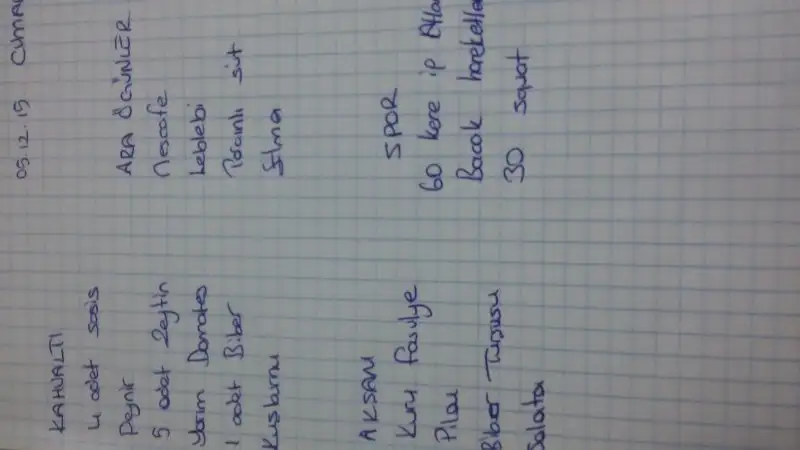 05.12.15 CUMAR
KAHVALTI
4 adet sosis
Peynir
5 adet Zeytin
Yarım Domates
1 adet Biber
Kuşburnu
ARA ÖĞÜNLER
Nescafe
Leblebi
Tarçınlı süt
Elma
AKŞAM
Kuru fasulye
Pilav
Biber Turşusu
Salata
SPOR
60 kere ip Atla
Bacak hareketla
30 squat